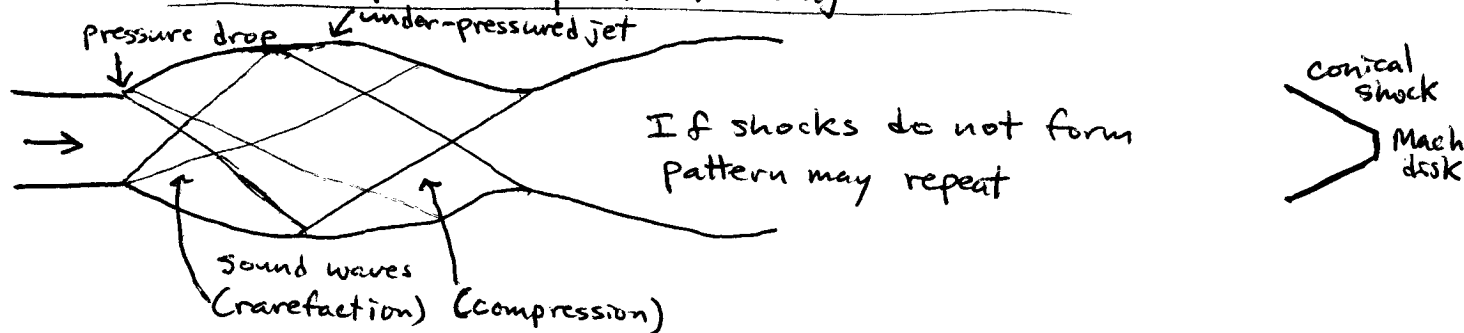 under-pressured jet
pressure drop
If shocks do not form
pattern may repeat
conical
shock
Mach
disk
sound waves
(rarefaction) (compression)